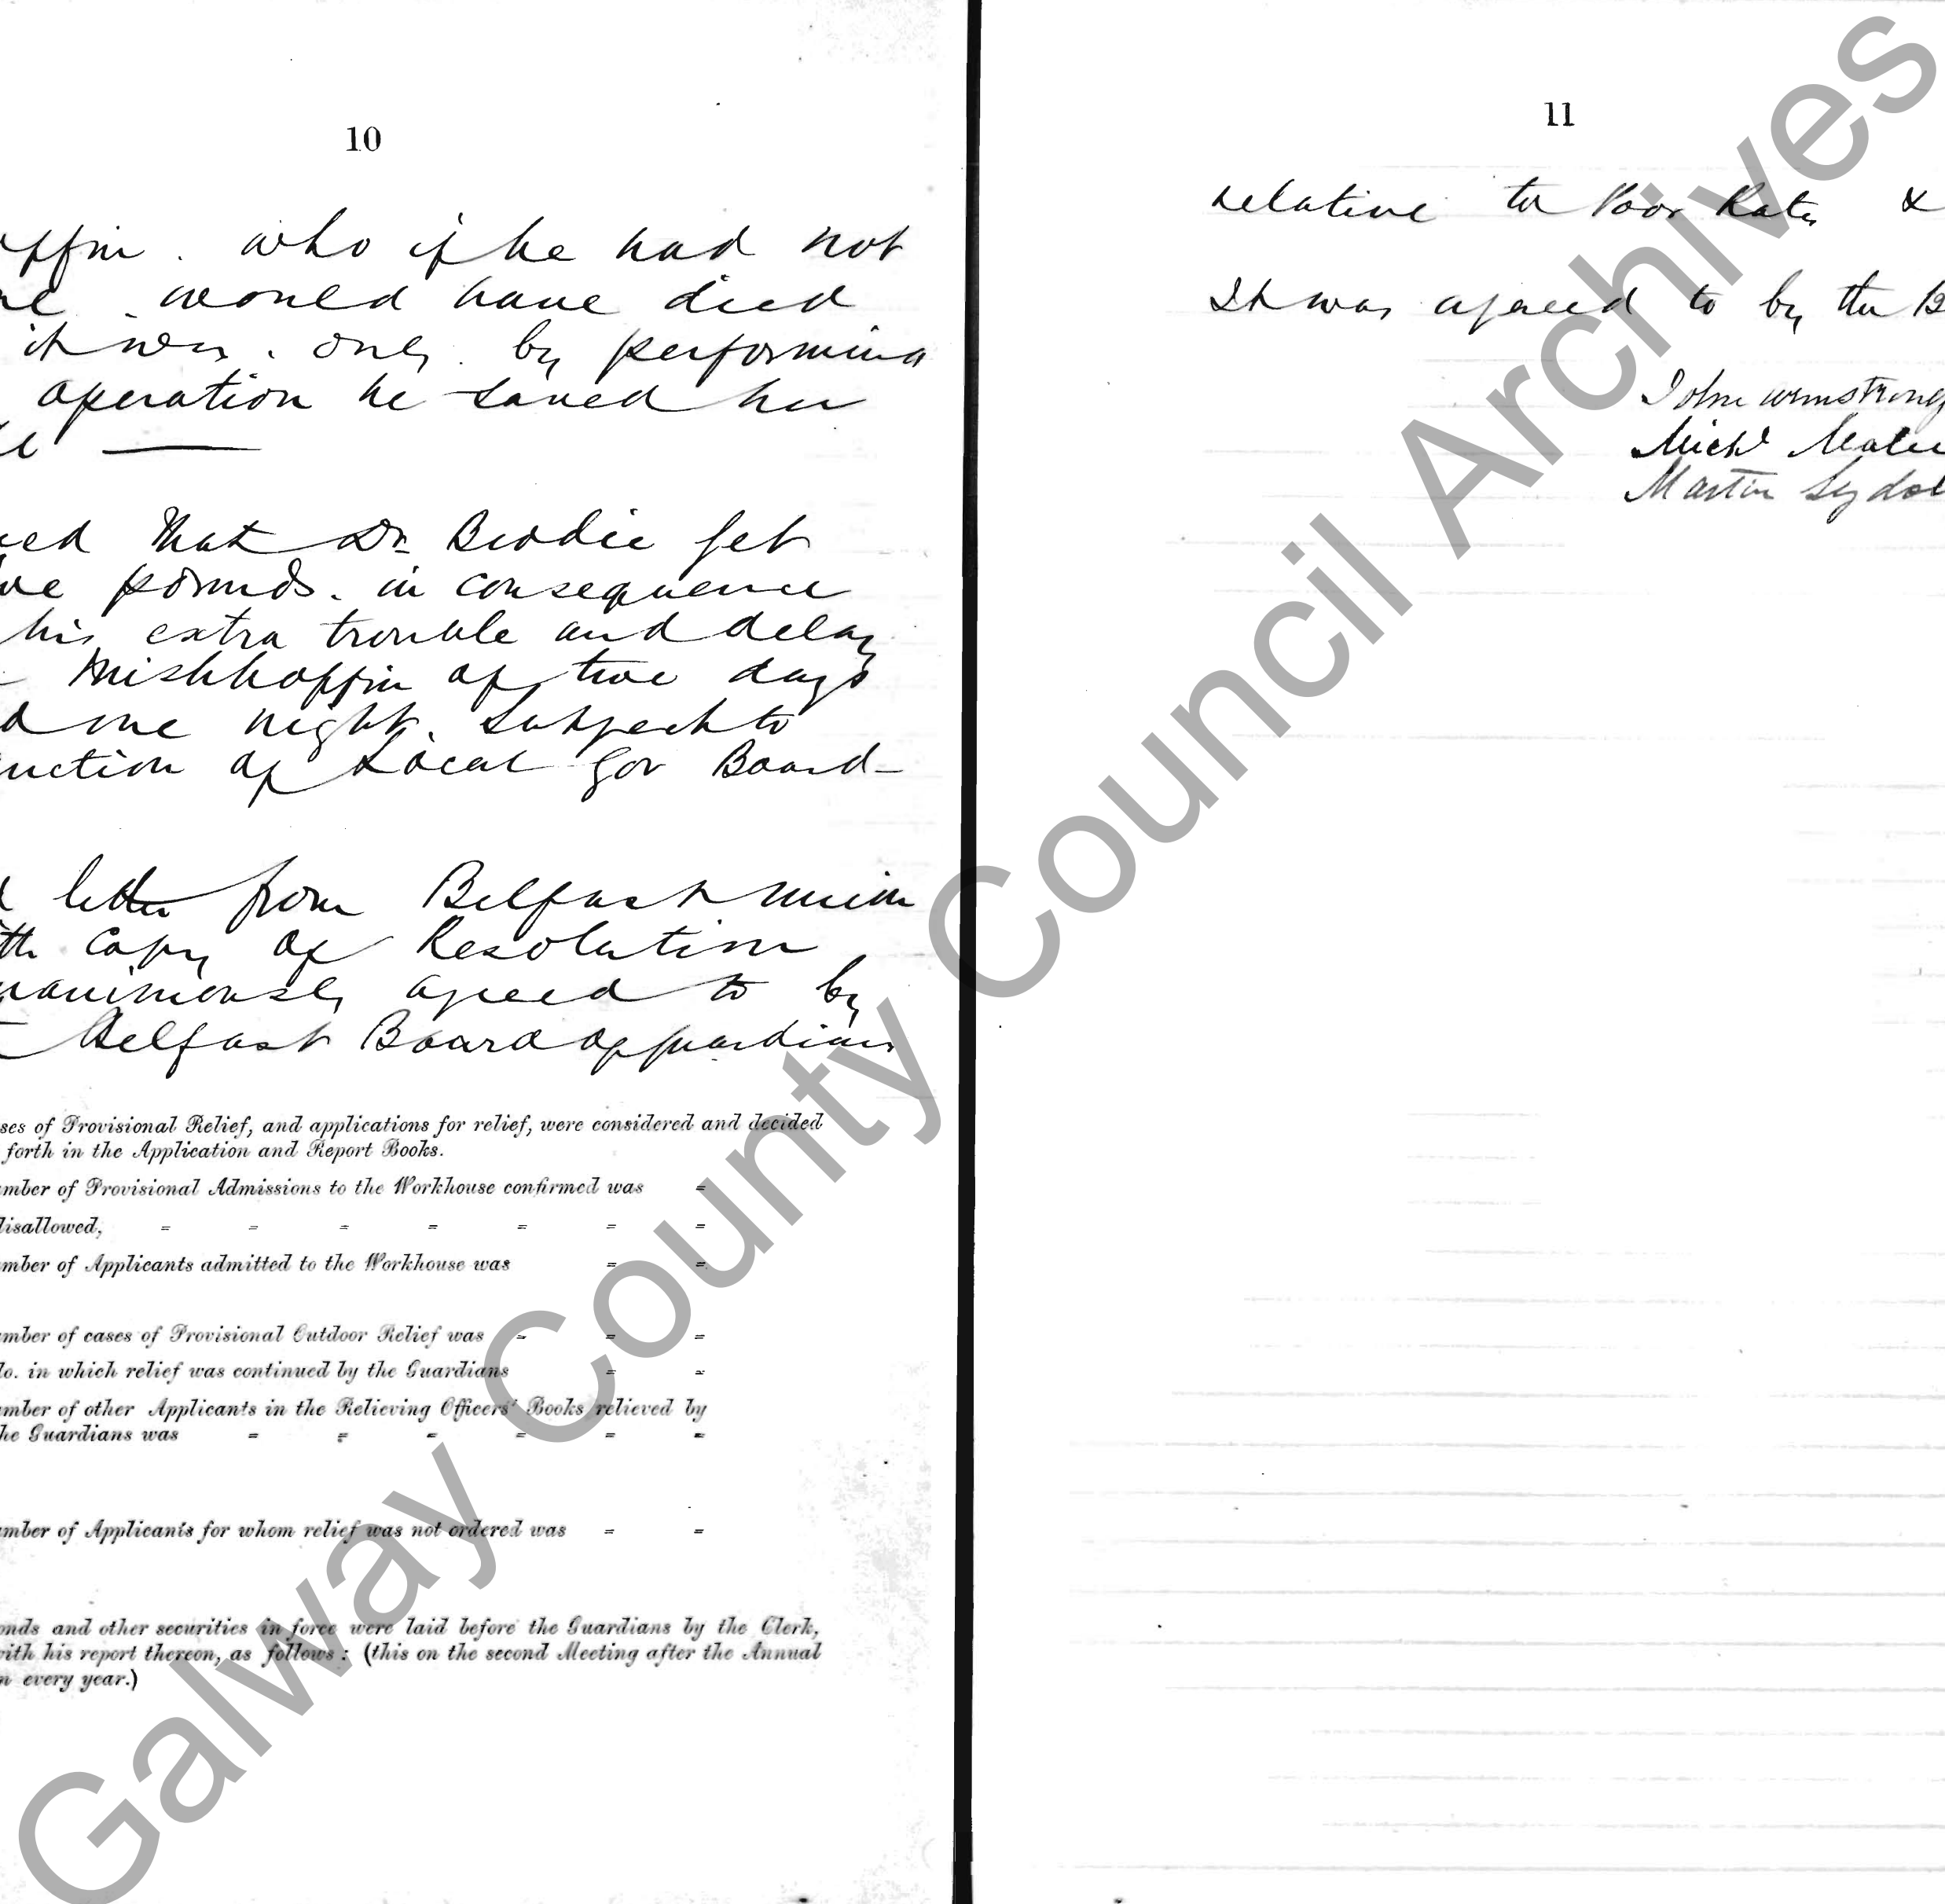 10
ffin. who if he had not
would have died
it was. only by performing
operation he saved her
ed that Dr Brodie get
ve pounds. in consequence
his extra trouble and delay
Inishboffin of two days
d one night. Subject to
nction of Local Gov Board
letter from Belfast Union
th Copy of Resolution
nanimously agreed to by
Belfast Board of Guardians
ses of Provisional Relief, and applications for relief, were considered and decided
forth in the Application and Report Books.
mber of Provisional Admissions to the Workhouse confirmed was =
disallowed, = = = = = = =
mber of Applicants admitted to the Workhouse was = =
mber of cases of Provisional Outdoor Relief was = = =
do. in which relief was continued by the Guardians = =
mber of other Applicants in the Relieving Officers' Books relieved by
he Guardians was = = = = = =
mber of Applicants for whom relief was not ordered was = =
onds and other securities in force were laid before the Guardians by the Clerk,
with his report thereon, as follows: (this on the second Meeting after the Annual
n every year.)
11
relative to Poor Rates &
It was agreed to by the B
John Armstrong
Michl
Martin
Galway County Council Archives